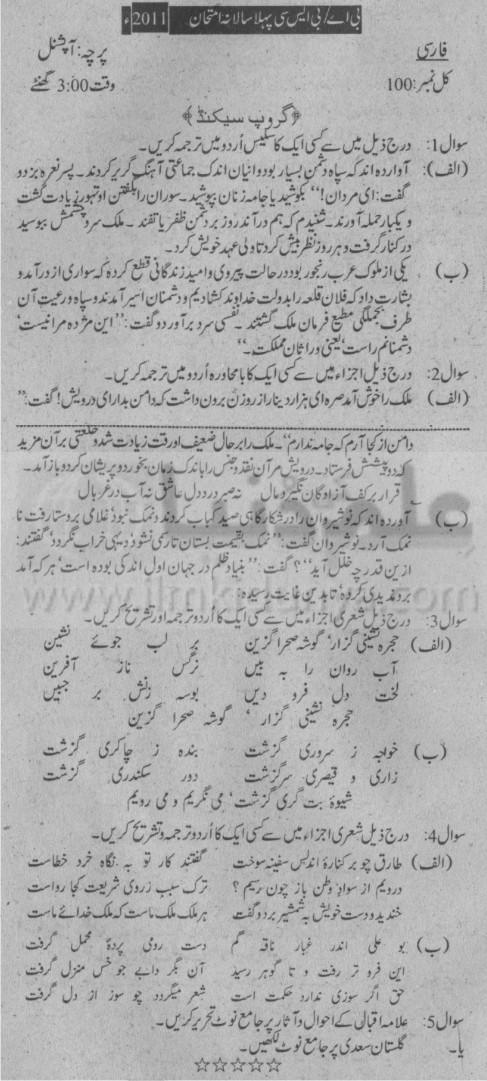 بی اے/بی ایس سی پہلا سالانہ امتحان 2011ء
فارسی پرچہ: آپشنل
کل نمبر: 100 وقت 3:00 گھنٹے
﴿گروپ سیکنڈ﴾
سوال 1: درج ذیل میں سے کسی ایک کا سلیس اُردو میں ترجمہ کریں۔
(الف): آوردہ اند کہ سپاہ دشمن بسیار بود و اینان اندک جماعتی آہنگ گریز کردند۔ پسر نعرہ بزد و
گفت: ای مردان!" بکوشید یا جامہ زنان بپوشید۔ سوران را بگفتن او تہور زیادت گشت
و یکبار حملہ آورند۔ شنیدم کہ ہم در آند روز بر دشمن ظفر یافتند۔ ملک سر و چشمش ببوسید
در کنار گرفت و ہر روز نظر بیش کرد تا ولی عہد خویش کرد۔
(ب): یکی از ملوک عرب رنجور بود در حالت پیروی و امید زندگانی قطع کردہ کہ سواری از در آمد و
بشارت داد کہ فلان قلعہ را بدولت خداوند کشادیم و دشمنان اسیر آمدند و سپاہ و رعیت آن
طرف بجملگی مطیع فرمان ملک گشتند۔ نفسی سرد بر آورد و گفت: "این مژدہ مرا نیست،
دشمنانم راست، یعنی وارثان مملکت۔"
سوال 2: درج ذیل اجزاء میں سے کسی ایک کا بامحاورہ اُردو میں ترجمہ کریں۔
(الف) ملک را خوش آمد صرہ ای ہزار دینار از روزن برون داشت کہ دامن بدار ای درویش! گفت: "
دامن از کجا آرم کہ جامہ ندارم"۔ ملک را بر حال ضعیف او رقت زیادت شد و خلعتی بر آن مزید
کرد و پیشش فرستاد۔ درویش مر آن نقد و جنس را باندک زمان بخورد و پریشان کرد و باز آمد۔
قرار بر کف آزادگان نگیرد مال نہ صبر در دل عاشق نہ آب در غربال
(ب) آوردہ اند کہ نوشیروان را در شکار گاہی صید کباب کردند و نمک نبود غلامی بروستا رفت تا
نمک آرد۔ نوشیروان گفت: "نمک بقیمت بستان تا رسمی نشود و دیہی خراب نگردد" گفتند:
ازین قدر چہ خلل آید"؟ گفت: "بنیاد ظلم در جہان اول اندکی بودہ است، ہر کہ آمد
برو مزیدی کردہ، تا بدین غایت رسیدہ:
سوال 3: درج ذیل شعری اجزاء میں سے کسی ایک کا اُردو ترجمہ اور تشریح کریں۔
(الف) حجرہ نشینی گزار، گوشہ صحرا گزین بر لب جوئے نشین
آب رواں را بہ بیں نرگس ناز آفرین
لخت دل فرو دیں بوسہ زنش بر جبیں
حجرہ نشینی گزار، گوشہ صحرا گزین
(ب) خواجہ ز سروری گزشت بندہ ز چاکری گزشت
زاری و قیصری سرگزشت دور سکندری گزشت
شیوۂ بت گری گزشت، می نگریم و می رویم
سوال 4: درج ذیل شعری اجزاء میں سے کسی ایک کا اُردو ترجمہ و تشریح کریں۔
(الف) طارق چو بر کنارۂ اندلس سفینہ سوخت گفتند کار تو بہ نگاہ خرد خطاست
درویم از سواد وطن باز چون رسیم؟ ترک سبب ز روی شریعت کجا رواست
خندید و دست خویش بہ شمشیر برد و گفت ہر ملک ملک ماست کہ ملک خدائے ماست
(ب) بو علی اندر غبار ناقہ گم دست رومی پردۂ محمل گرفت
این فرو تر رفت و تا گوہر رسید آن بگر دابے جو خس منزل گرفت
حق اگر سوزی ندارد حکمت است شعر میگردد چو سوز از دل گرفت
سوال 5: علامہ اقبال کے احوال و آثار پر جامع نوٹ تحریر کریں۔
یا۔ گلستان سعدی پر جامع نوٹ لکھیں۔
☆☆☆☆☆